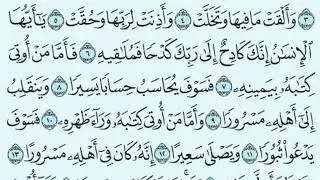 ٣ وَأَلْقَتْ مَا فِيهَا وَتَخَلَّتْ ٤ وَأَذِنَتْ لِرَبِّهَا وَحُقَّتْ ٥ يَٰٓأَيُّهَا
ٱلْإِنسَٰنُ إِنَّكَ كَادِحٌ إِلَىٰ رَبِّكَ كَدْحًا فَمُلَٰقِيهِ ٦ فَأَمَّا مَنْ أُوتِىَ
كِتَٰبَهُۥ بِيَمِينِهِۦ ٧ فَسَوْفَ يُحَاسَبُ حِسَابًا يَسِيرًا ٨ وَيَنقَلِبُ
إِلَىٰٓ أَهْلِهِۦ مَسْرُورًا ٩ وَأَمَّا مَنْ أُوتِىَ كِتَٰبَهُۥ وَرَآءَ ظَهْرِهِۦ ١٠ فَسَوْفَ
يَدْعُوا۟ ثُبُورًا ١١ وَيَصْلَىٰ سَعِيرًا ١٢ إِنَّهُۥ كَانَ فِىٓ أَهْلِهِۦ مَسْرُورًا ١٣